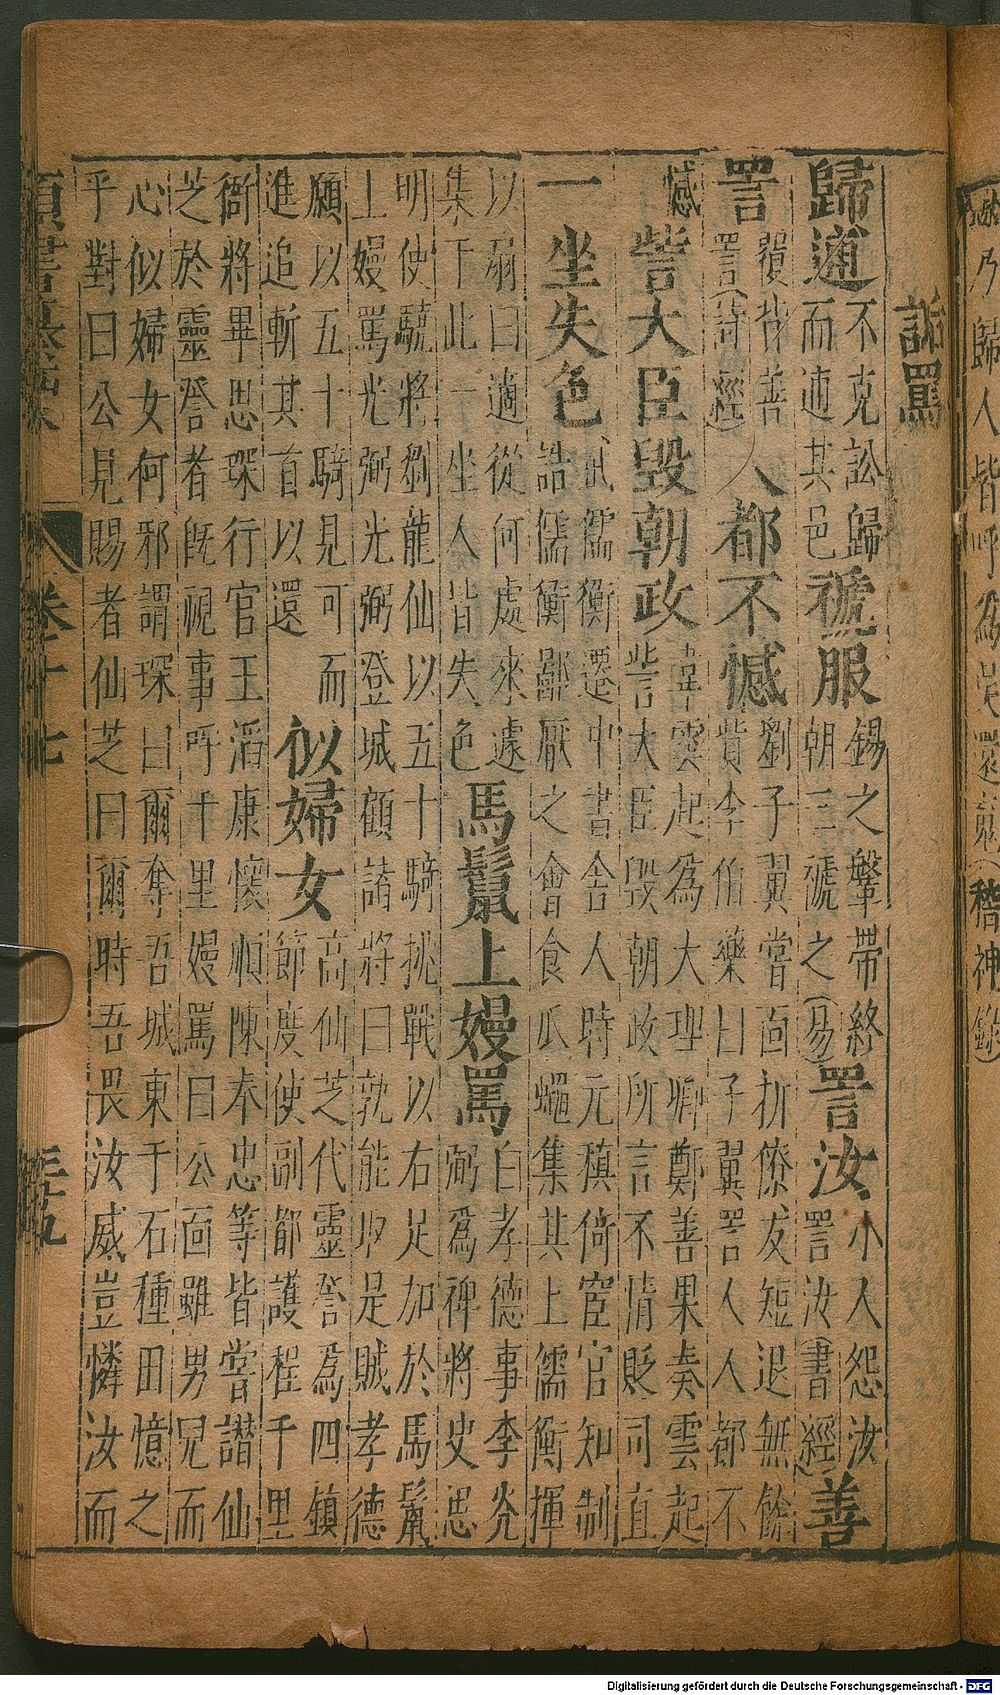 乃歸人皆呼為還冤(稽神錄)
詬罵
歸逋
不克訟歸
而逋其邑
褫服
錫之鞶帶終
朝三褫之(易)
詈汝
小人怨汝
詈汝(書經)
善
詈
覆背善
詈(詩經)
人都不憾
劉子翼嘗面折僚友短退無餘
貲李伯藥曰子翼詈人人都不
憾
訾大臣毀朝政
韋雲起為大理卿鄭善果奏雲起
訾大臣毀朝政所言不情貶司直
一坐失色
武儒衡遷中書舍人時元稹倚宦官知制
誥儒衡鄙厭之會食瓜蠅集其上儒衡揮
以扇曰適從何處來遽
集于此一坐人皆失色
馬鬣上嫚罵
白孝德事李光
弼為裨將史思
明使驍將劉龍仙以五十騎挑戰以右足加於馬鬣
上嫚罵光弼光弼登城顧諸將曰孰能取是賊孝德
願以五十騎見可而
進追斬其首以還
似婦女
高仙芝代靈詧為四鎮
節度使副都護程千里
衙將畢思琛行官王滔康懷順陳奉忠等皆嘗譖仙
芝於靈詧者既視事呼千里嫚罵曰公面雖男兒而
心似婦女何邪謂琛曰爾奪吾城東千石種田憶之
乎對曰公見賜者仙芝曰爾時吾畏汝威豈憐汝而
卷十七
Digitalisierung gefördert durch die Deutsche Forschungsgemeinschaft - DFG